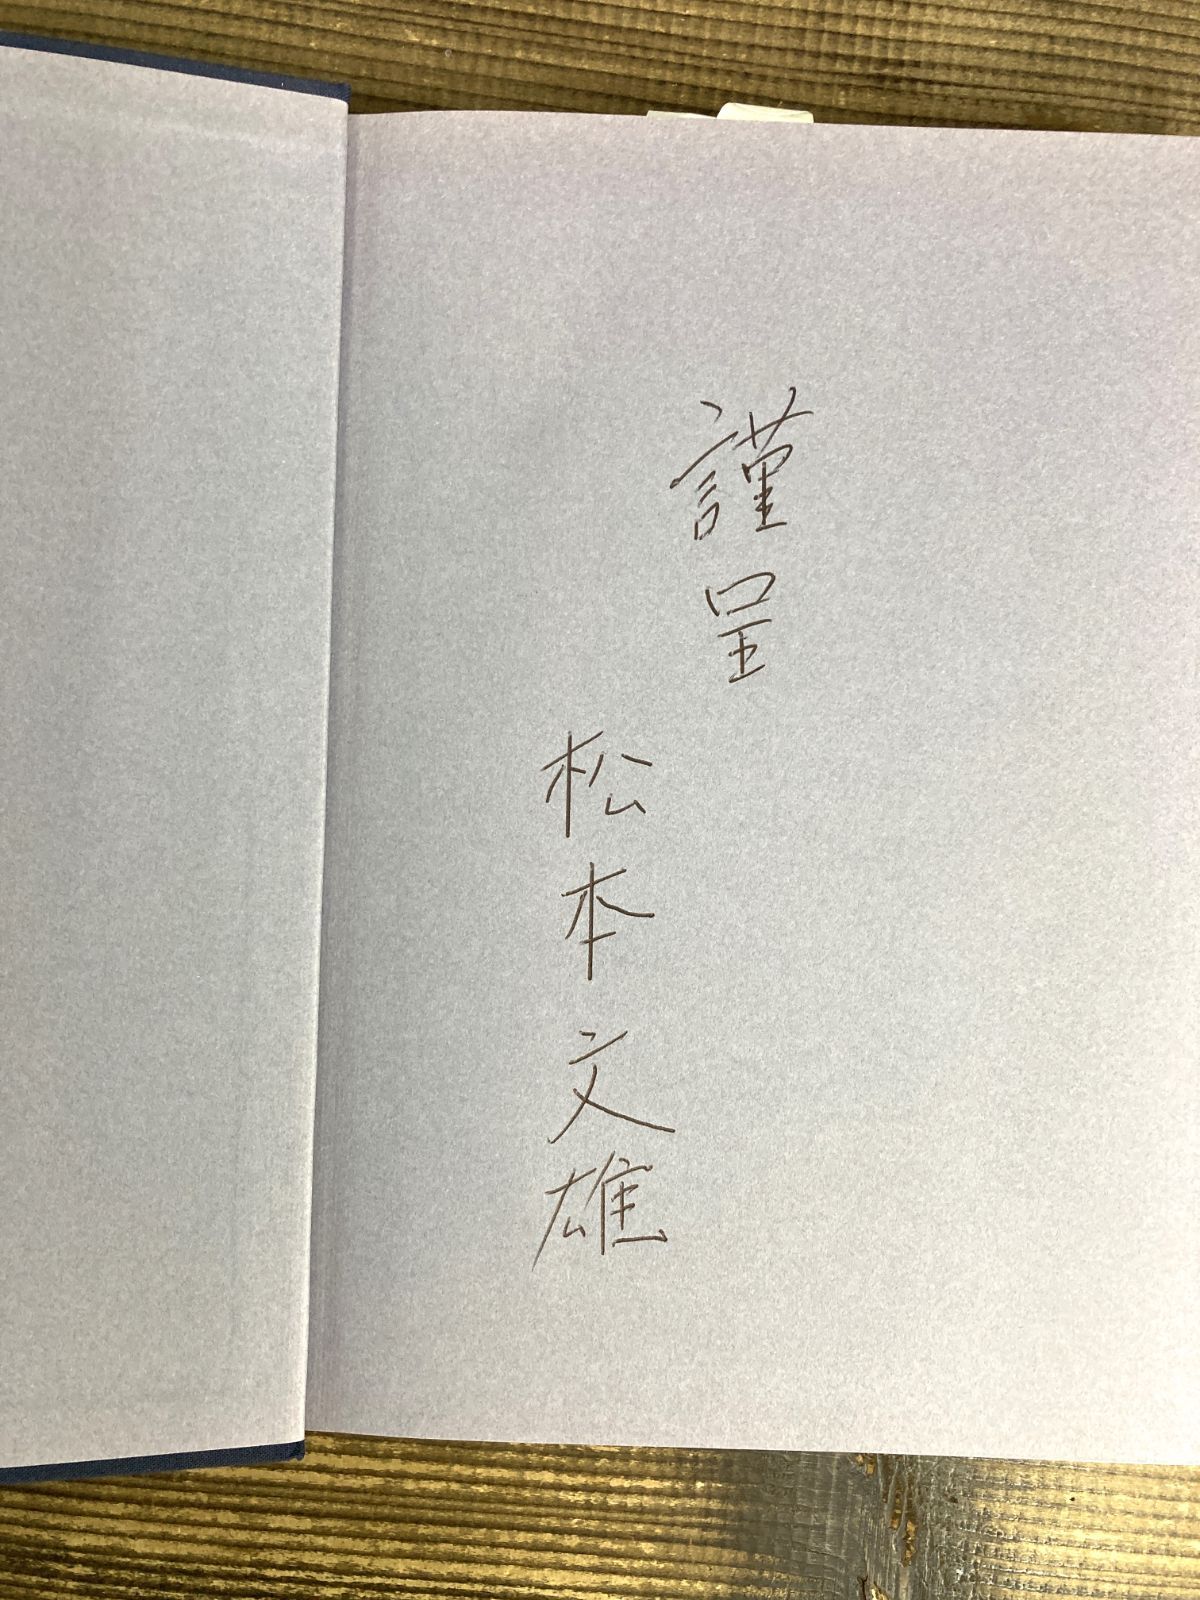 謹呈
松本文雄